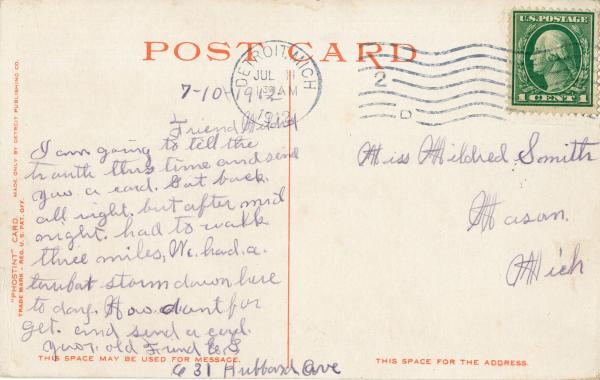 U.S. POSTAGE
1 CENT 1
POST CARD
DETROIT, MICH
JUL 11
AM
1912
2
D
7-10-1912
Friend Mildred
I am going to tell the
truth this time and send
you a card. Got back
all right. but after mid
night. had to walk
three miles, We had. a.
teribal storm down here
to day. Now dont for
get. and send a card.
your old Friend E.S
631 Hubbard Ave
Miss Mildred Smith
Mason.
Mich
"PHOSTINT" CARD MADE ONLY BY DETROIT PUBLISHING CO.
TRADE MARK - REG. U.S. PAT. OFF.
THIS SPACE MAY BE USED FOR MESSAGE.
THIS SPACE FOR THE ADDRESS.